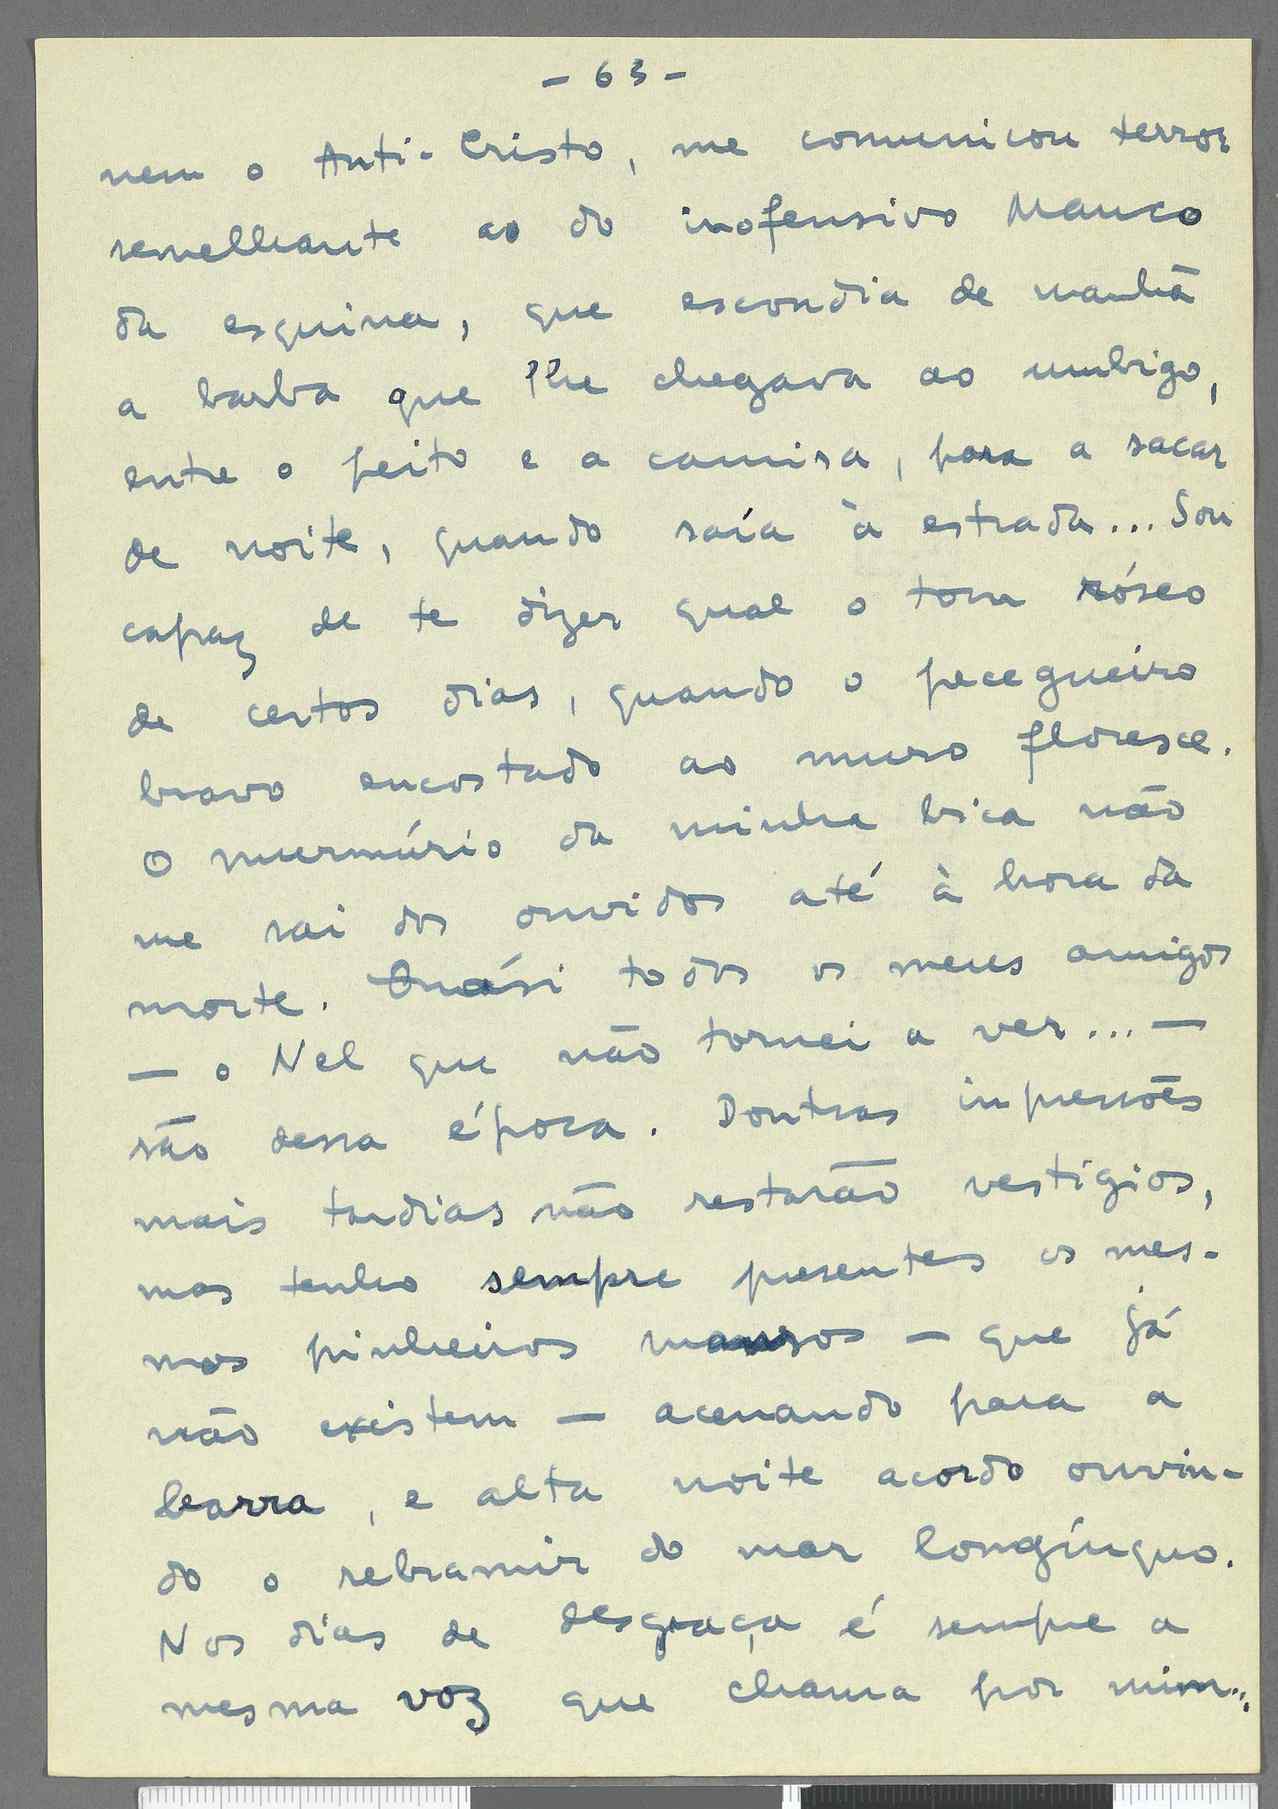 - 63 -
nem o Anti-Cristo, me comunicou terror
semelhante ao do inofensivo Manco
da esquina, que escondia de manhã
a barba que lhe chegava ao umbigo,
entre o peito e a camisa, para a sacar
de noite, quando saía à estrada... Sou
capaz de te dizer qual o tom róseo
de certos dias, quando o pecegueiro
bravo encostado ao muro floresce.
O murmúrio da minha bica não
me sai dos ouvidos até à hora da
morte. Quási todos os meus amigos
— o Nel que não tornei a ver... —
são dessa época. Doutras impressões
mais tardias não restarão vestígios,
mas tenho sempre presentes os mes-
mos pinheiros mansos — que já
não existem — acenando para a
barra, e alta noite acordo ouvin-
do o rebramir do mar longínquo.
Nos dias de desgraça é sempre a
mesma voz que chama por mim...